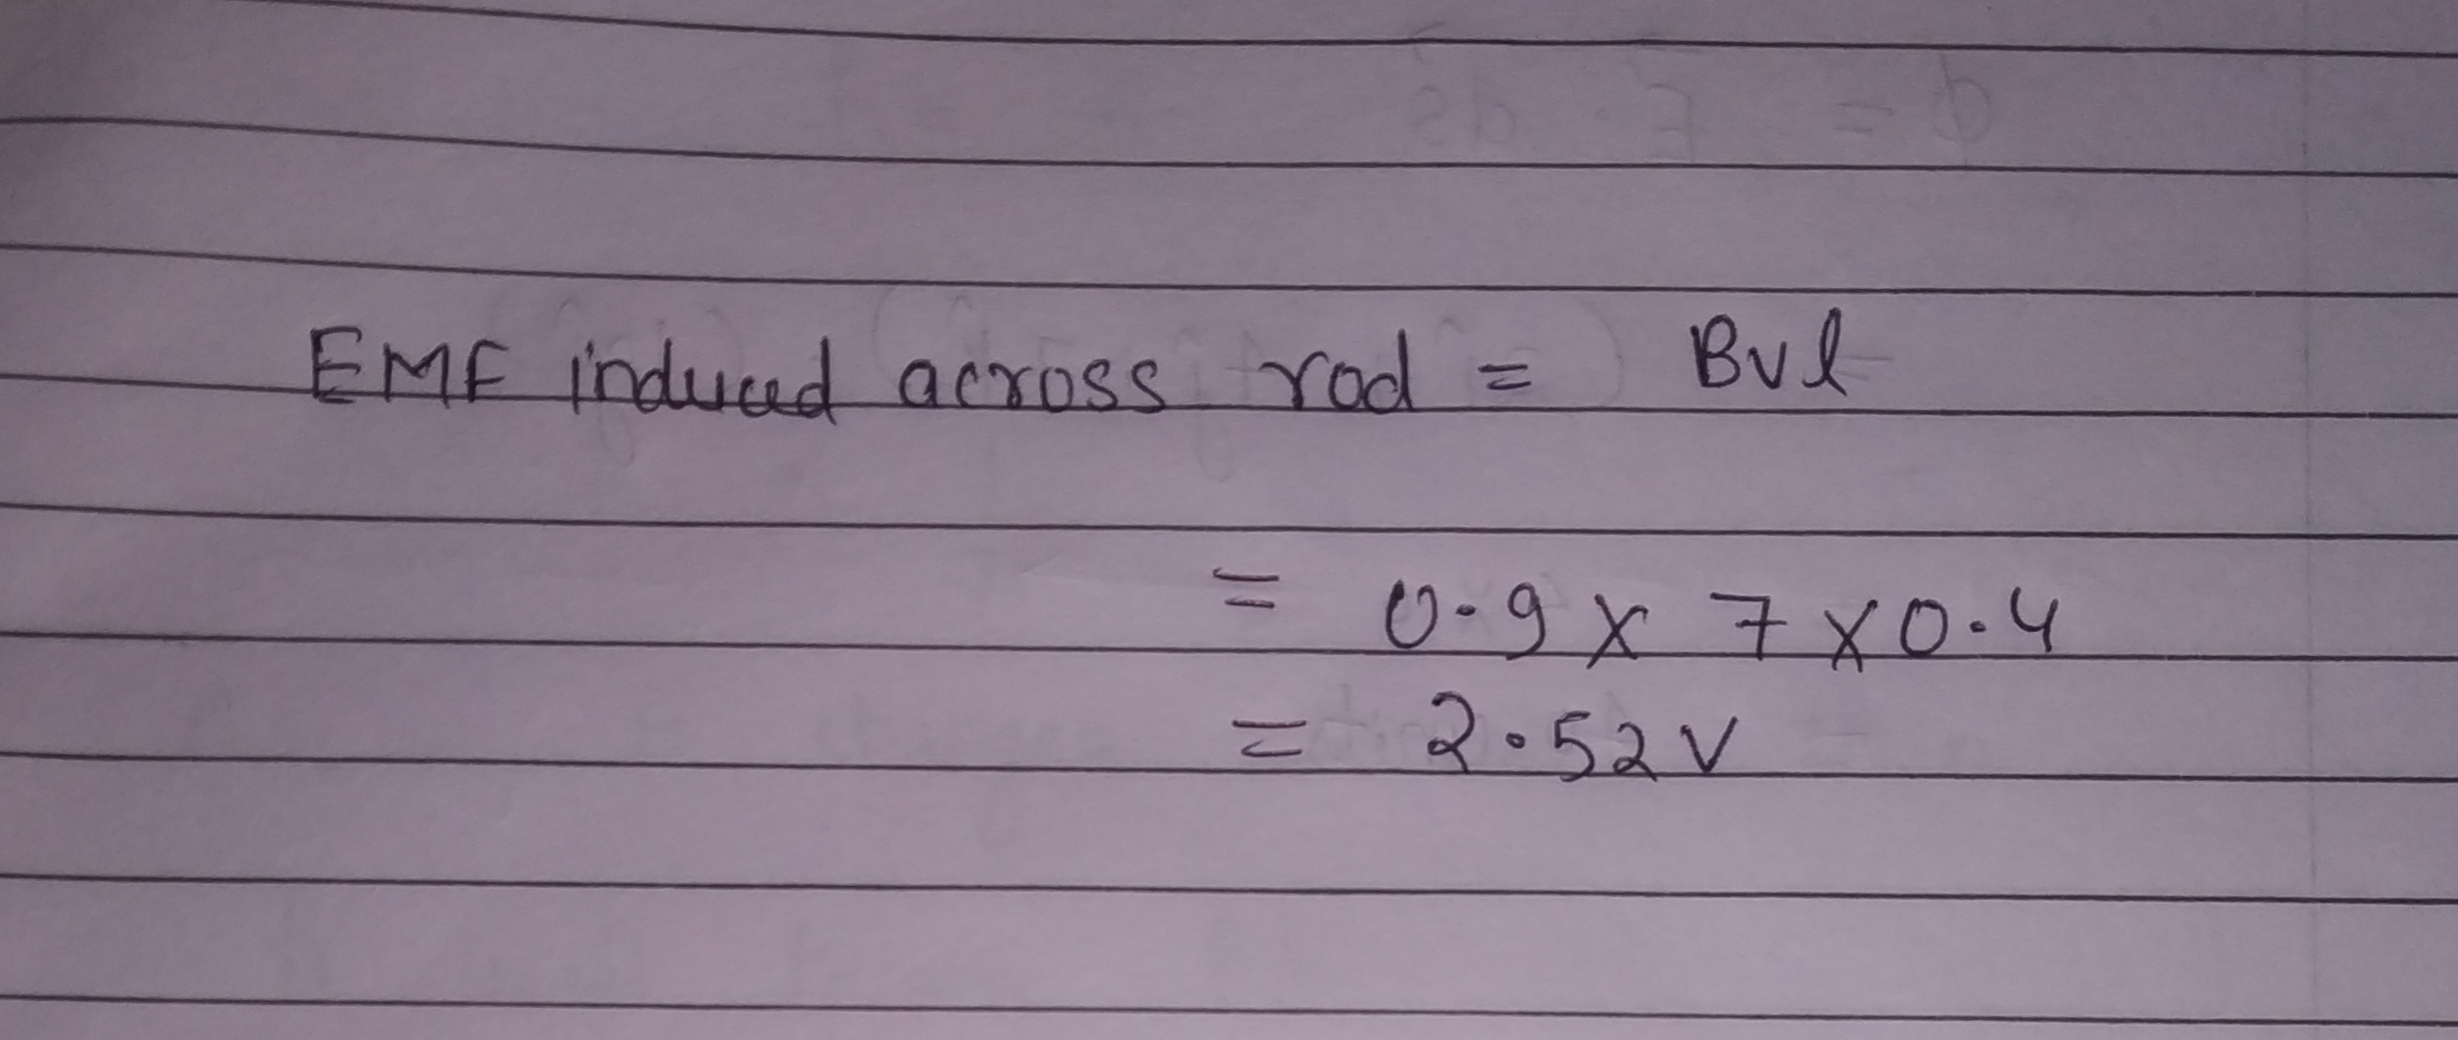 EMF induced across rod = Bvl
= 0.9 x 7 x 0.4
= 2.52 V